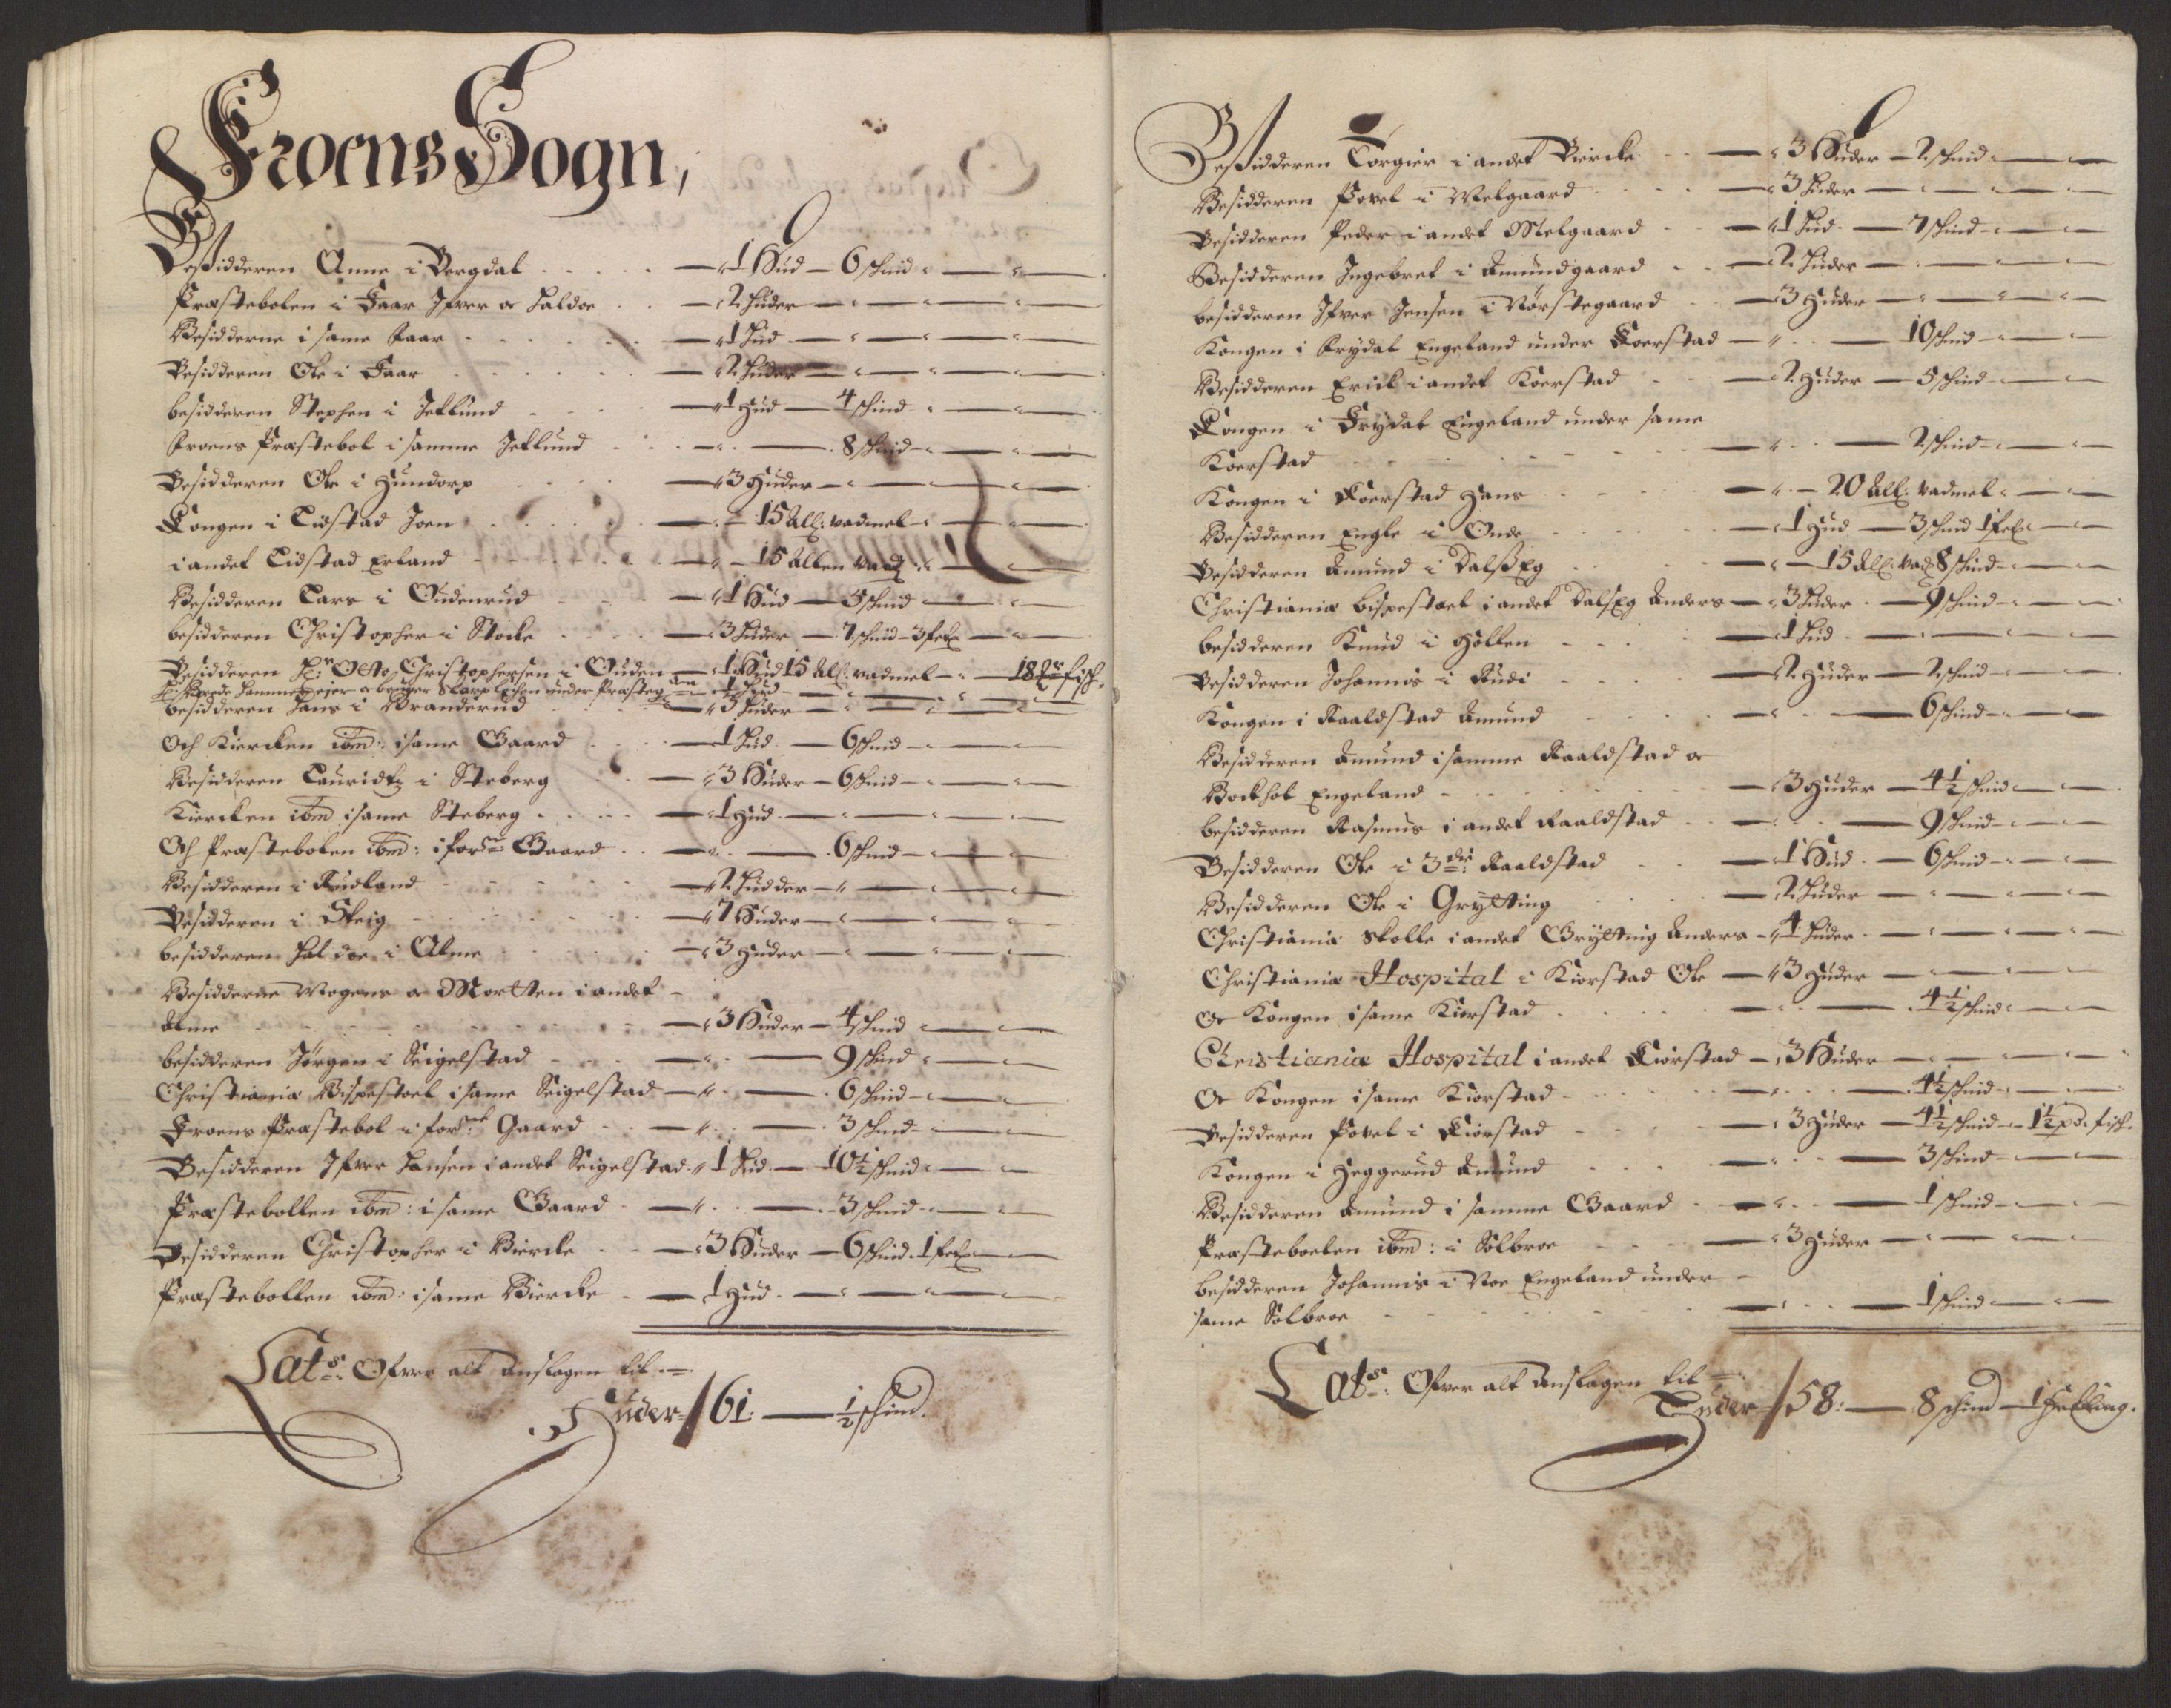 Froens Sogn,
Besidderen Anne i Bergdal — 1 Hud — 6 schind
Præstebolen i Faar Ifver oc Haldoe — 2 Huder
Besidderne i same Faar — 1 Hud
Besidderen Ole i Faar — 2 Huder
besidderen Stephen i Jetlund — 1 Hud — 4 schind
Froens Præstebol i samme Jetlund — 8 schind
Besidderen Ole i Hundorp — 3 Huder
Kongen i Tidstad Joen — 15 All: vadmel
i andet Tidstad Erland — 15 Allen vadm
Besidderen Lars i Gudenrud — 1 Hud — 5 schind
besidderen Christopher i Stocke — 3 Huder — 7 schind — 3 fel
Besidderen Hr: Otto Christophersen i Guden — 1 Hud 15 All: vadmel — 18 fisch
besidderen Hans i Branderud — 3 Huder
Och Kiercken ibm: i same Gaard — 1 Hud — 6 schind
Besidderen Lauridtz i Steberg — 3 Huder — 6 schind
Kiercken ibm i same Steberg — 1 Hud
Och Præstebolen ibm: i forne Gaard — 6 schind
Besidderen i Rudland — 2 Hudder
Besidderen i Steig — 7 Huder
besidderen Haldoe i Alme — 3 Huder
Besidderne Mogens oc Mortten i andet
Alme — 3 Huder — 4 schind
besidderen Jørgen i Seigelstad — 9 schind
Christianiæ Bispestoel i same Seigelstad — 6 schind
Froens Præstebol i forne Gaard — 3 schind
Besidderen Ifver Hansen i andet Seigelstad — 1 Hud — 10½ schind
Præstebollen ibm: i same Gaard — 3 schind
Besidderen Christopher i Biercke — 3 Huder — 6 schind 1 fel
Præstebollen ibm: i same Biercke — 1 Hud
Lats: Ofver alt Anslagen til
Huder 61: — ½ schind.
Besidderen Torgier i andet Biercke — 3 Huder — 2 schind
Besidderen Povel i Melgaard — 3 Huder
Besidderen Peder i andet Melgaard — 1 Hud — 7 schind
Besidderen Ingebret i Amundgaard — 2 Huder
besidderen Ifver Jensen i Nørstegaard — 3 Huder
Kongen i Frydal Engeland under Koerstad — 10 schind
Besidderen Erick i andet Koerstad — 2 Huder — 5 schind
Kongen i Frydal Engeland under same
Koerstad — 2 schind
Kongen i Koerstad Hans — 20 All: vadmel
Besidderen Engle i Onde — 1 Hud — 3 schind 1 fel
Besidderen Amund i Dalseg — 15 All: vad 8 schind
Christianiæ bispestoel i andet Dalseg Anders — 3 Huder — 9 schind
besidderen Knud i Hollen — 1 Hud
Besidderen Johannis i Rudi — 2 Huder — 2 schind
Kongen i Raaldstad Amund — 6 schind
Besidderen Amund i samme Raaldstad oc
Bockhol Engeland — 3 Huder — 4½ schind
besidderen Rasmus i andet Raaldstad — 9 schind
Besidderen Ole i 3die: Raaldstad — 1 Hud — 6 schind
Besidderen Ole i Grytting — 2 Huder
Christianiæ Skolle i andet Grytting Anders — 4 Huder
Christianiæ Hospital i Kiorstad Ole — 3 Huder
Oc Kongen i same Kiorstad — 4½ schind
Christianiæ Hospital i andet Kiorstad — 3 Huder
Oc Kongen i same Kiorstad — 4½ schind
Besidderen Povel i Kiorstad — 3 Huder — 4½ schind — 1½ pd. fisch
Kongen i Heggerud Amund — 3 schind
Besidderen Amund i samme Gaard — 1 schind
Præsteboelen ibm: i Solbroe — 3 Huder
besidderen Johannis i Noe Engeland under
same Solbroe — 1 schind
Lats: Ofver alt Anslagen til
Huder 58: — 8 schind — 1 Felling.